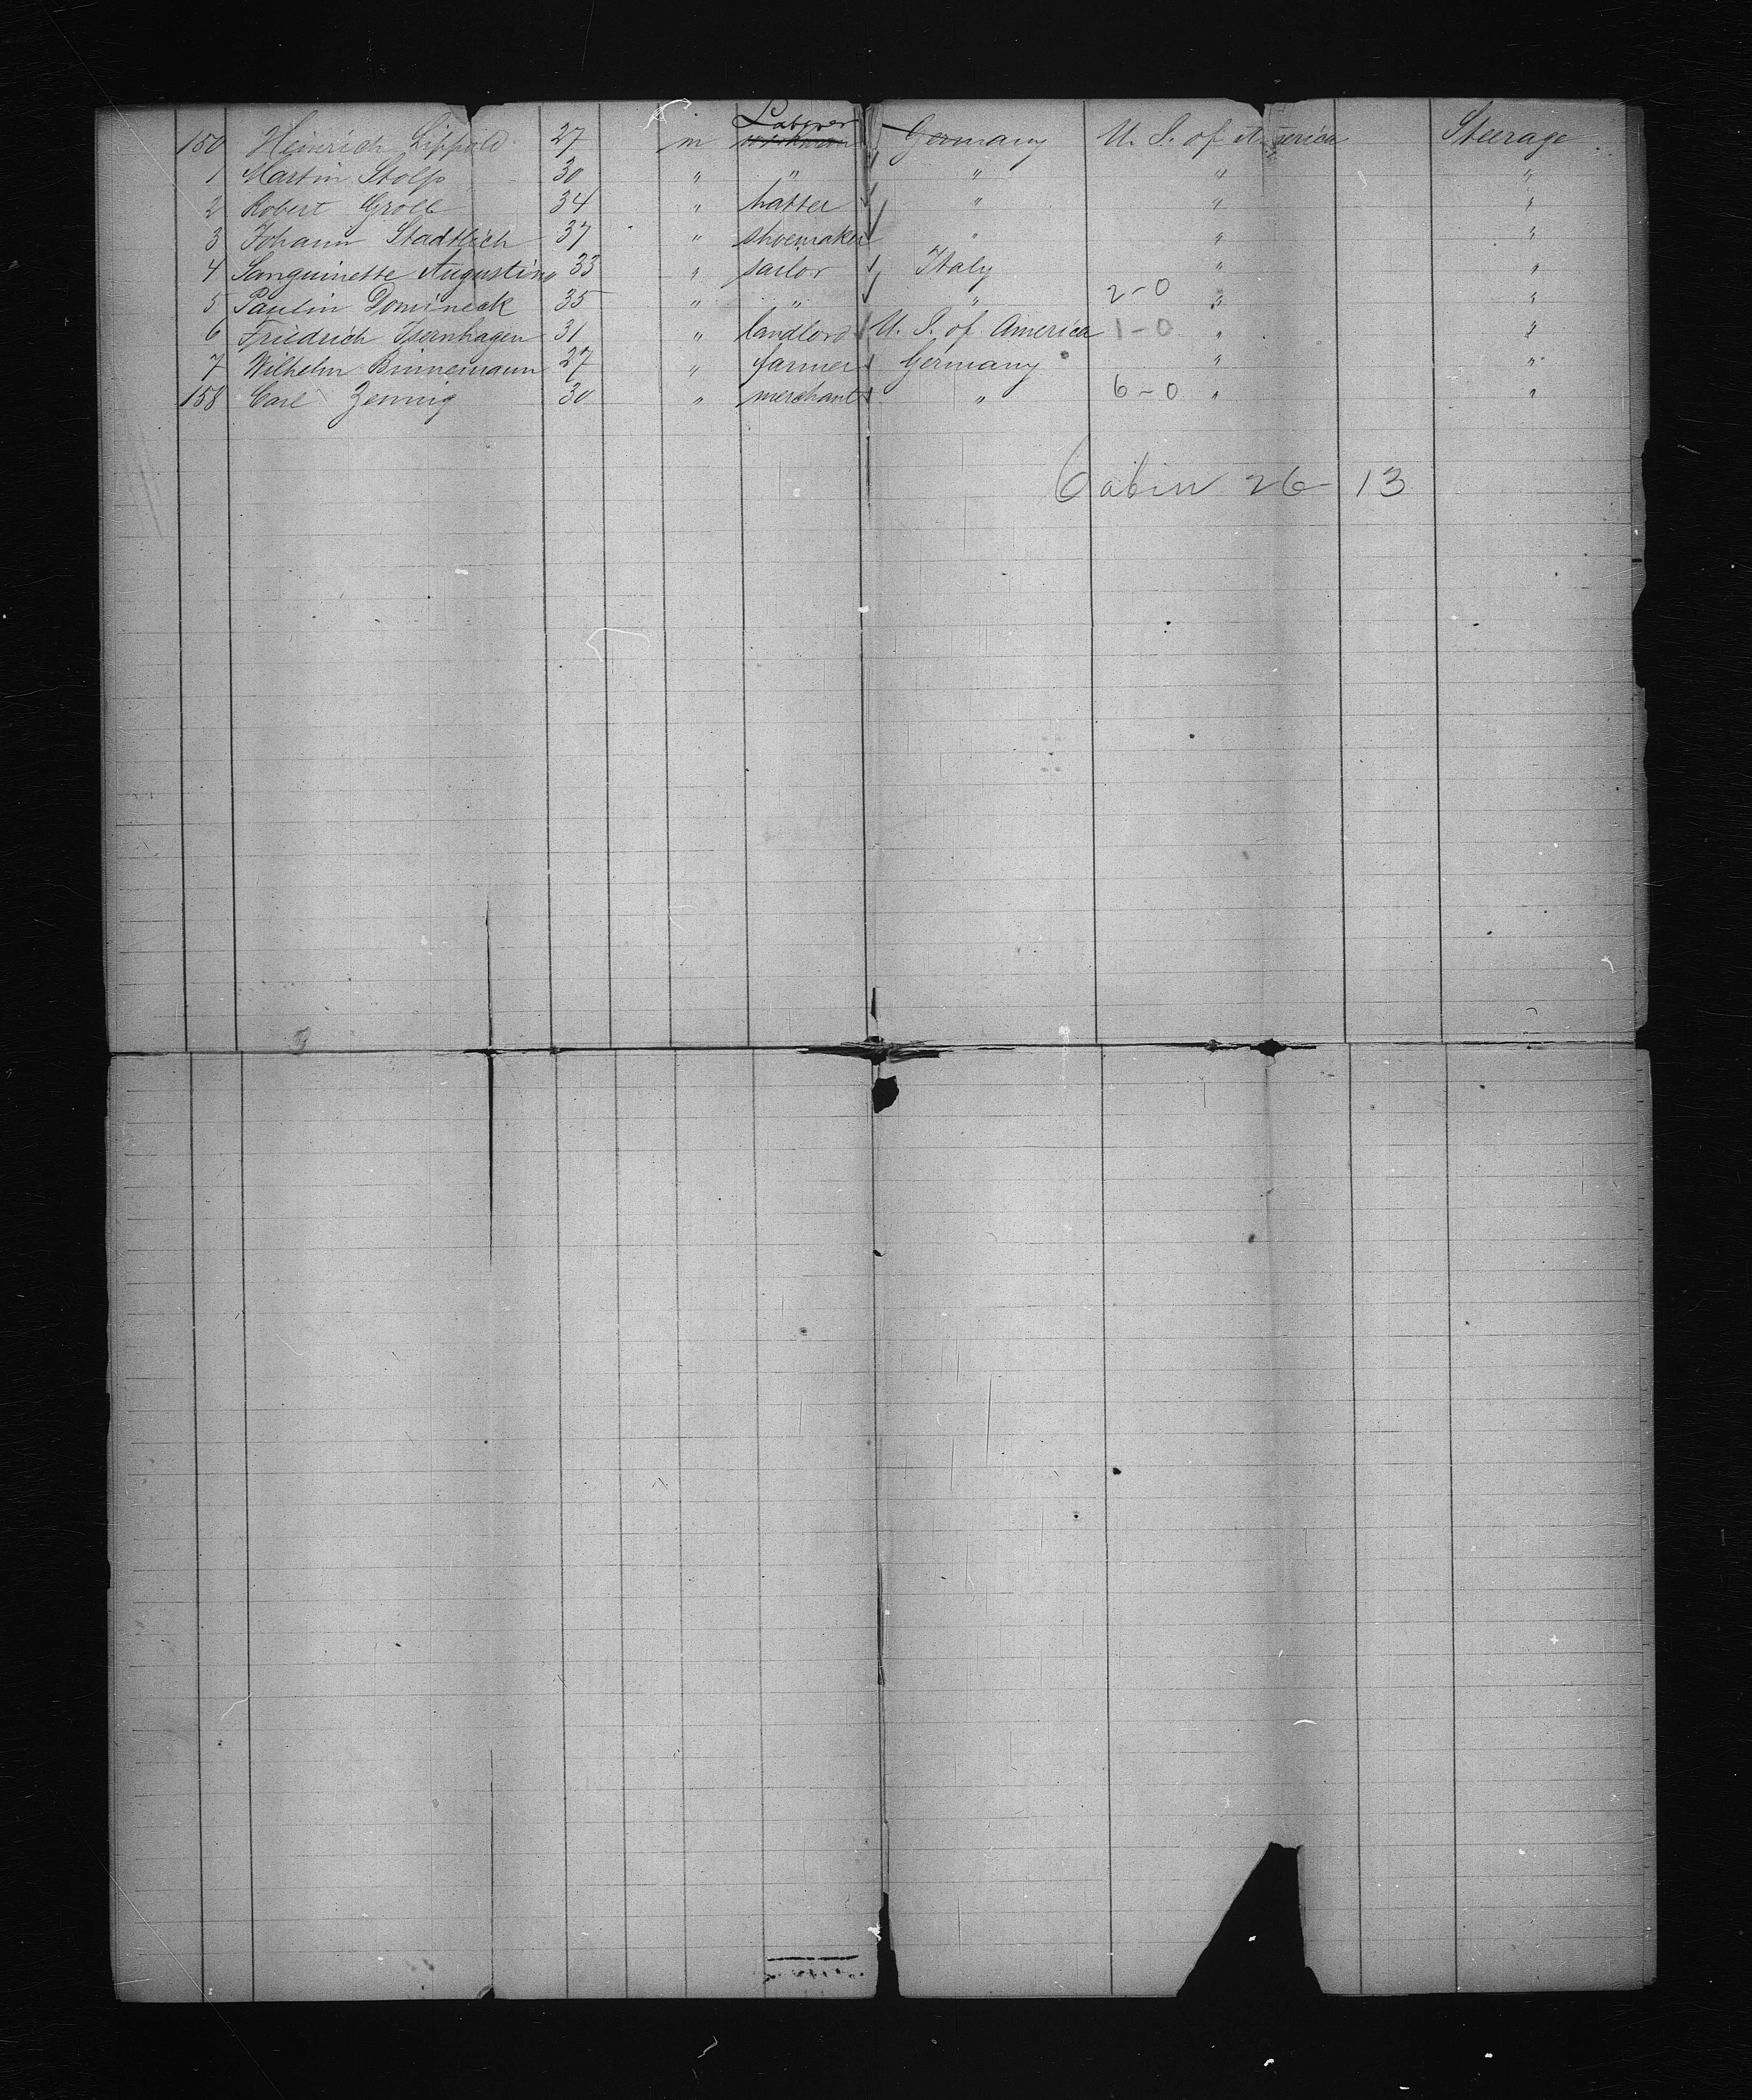 Laborer
150 Heinrich Lippold 27 m Germany U. S. of America Steerage
1 Martin Stolp 30 " " " " "
2 Robert Groll 34 " hatter " " "
3 Johann Stadtlich 37 " shoemaker " " "
4 Sanguinette Augustino 33 " sailor Italy " "
5 Paulin Domineck 35 " " " 2-0 " "
6 Friedrich Isernhagen 31 " landlord U. S. of America 1-0 " "
7 Wilhelm Binnemann 27 " farmer Germany " "
158 Carl Zennig 30 " merchant " 6-0 " "
Cabin 26 13